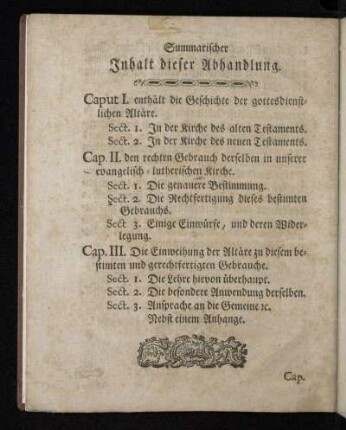 Summarischer
Inhalt dieser Abhandlung.
Caput I. enthält die Geschichte der gottesdienst-
lichen Altäre.
Sect. 1. In der Kirche des alten Testaments.
Sect. 2. In der Kirche des neuen Testaments.
Cap. II. den rechten Gebrauch derselben in unserer
evangelisch-lutherischen Kirche.
Sect. 1. Die genauere Bestimmung.
Sect. 2. Die Rechtfertigung dieses bestimten
Gebrauchs.
Sect 3. Einige Einwürfe, und deren Wider-
legung.
Cap. III. Die Einweihung der Altäre zu diesem be-
stimten und gerechtfertigten Gebrauche.
Sect. 1. Die Lehre hiervon überhaupt.
Sect. 2. Die besondere Anwendung derselben.
Sect. 3. Ansprache an die Gemeine ꝛc.
Nebst einem Anhange.
Cap.